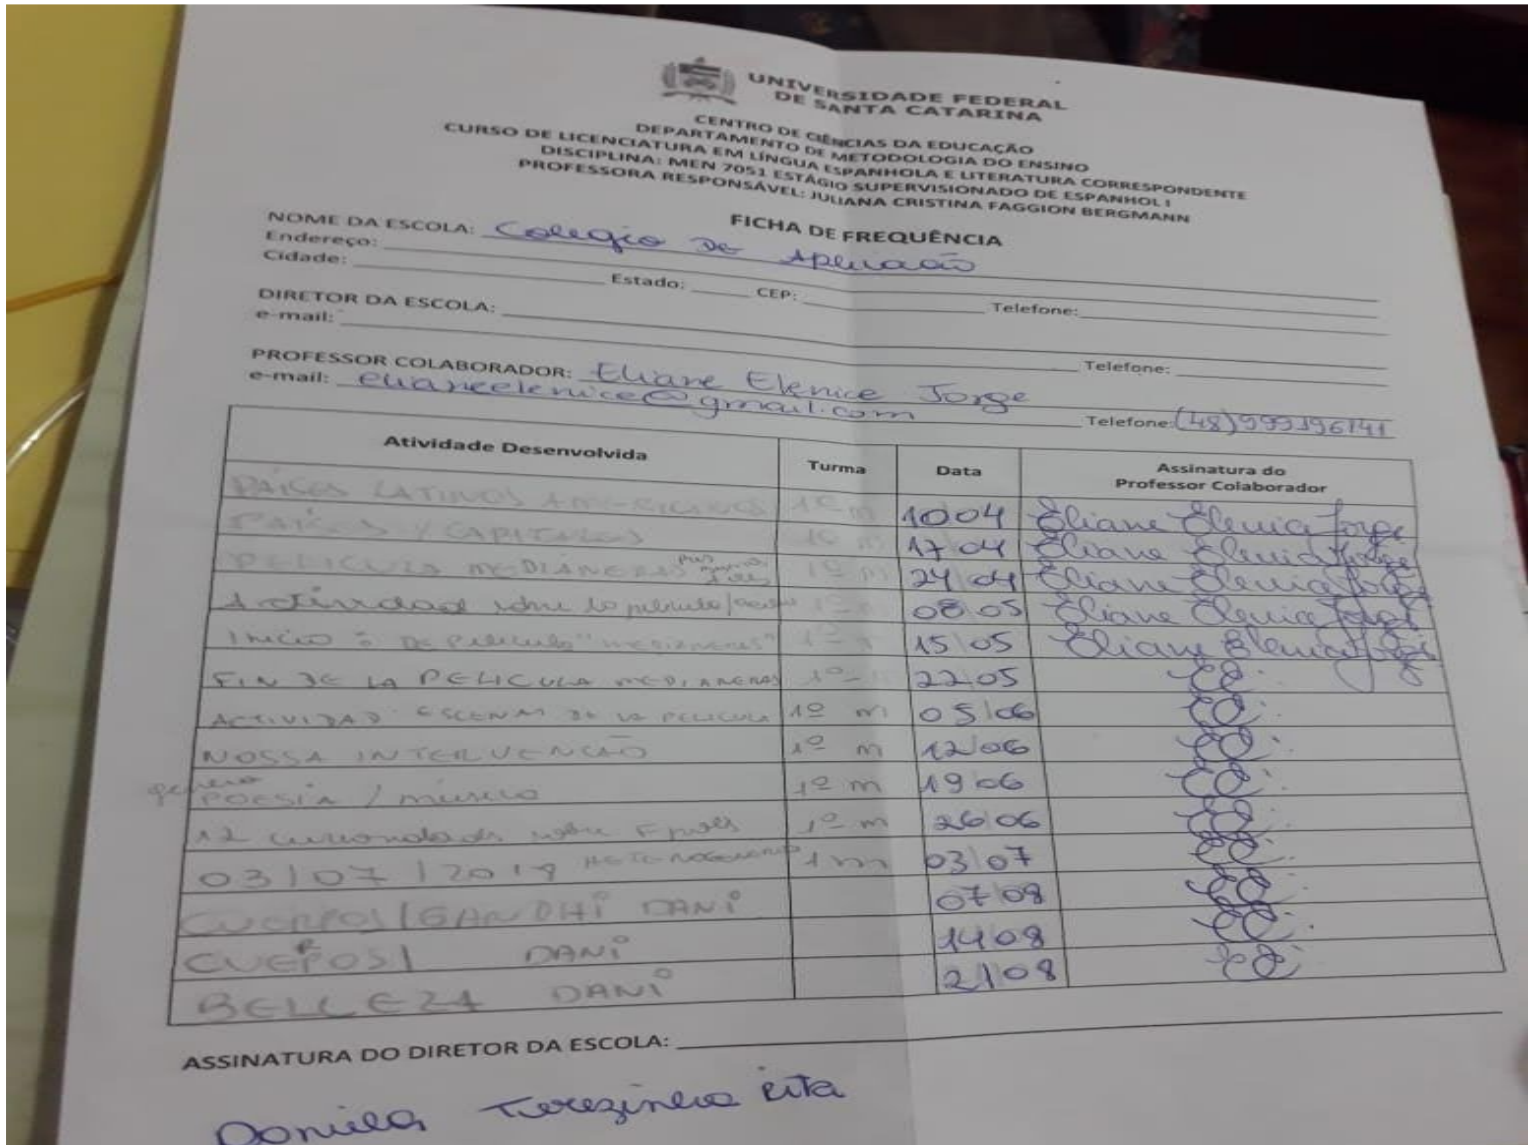 UNIVERSIDADE FEDERAL
DE SANTA CATARINA
CENTRO DE CIÊNCIAS DA EDUCAÇÃO
DEPARTAMENTO DE METODOLOGIA DO ENSINO
CURSO DE LICENCIATURA EM LÍNGUA ESPANHOLA E LITERATURA CORRESPONDENTE
DISCIPLINA: MEN 7051 ESTÁGIO SUPERVISIONADO DE ESPANHOL I
PROFESSORA RESPONSÁVEL: JULIANA CRISTINA FAGGION BERGMANN
FICHA DE FREQUÊNCIA
NOME DA ESCOLA: Colegio De Aplicação
Endereço:
Cidade: Estado: CEP: Telefone:
DIRETOR DA ESCOLA:
e-mail: Telefone:
PROFESSOR COLABORADOR: Eliane Elenice Jorge
e-mail: elianeelenice@gmail.com Telefone: (48)999196141
Atividade Desenvolvida Turma Data Assinatura do Professor Colaborador
PAISES LATINOS AMERICANOS 1º m 10 04 Eliane Elenice Jorge
PAÍSES Y CAPITALES 1º m 17 04 Eliane Elenice Jorge
PELICULA MEDIANERAS 1º m 24 04 Eliane Elenice Jorge
Actividad sobre la pelicula 1º 08 05 Eliane Elenice Jorge
Inicio De Pelicula "MEDIANERAS" 1º 15 05 Eliane Elenice Jorge
FIN DE LA PELICULA MEDIANERAS 1º 22 05 EE
ACTIVIDAD ESCENAS DE LA PELICULA 1º m 05 06 EE
NOSSA INTERVENÇÃO 1º m 12 06 EE
genero POESIA / música 1º m 19 06 EE
12 curiosidades sobre 1º m 26 06 EE
03/07/2018 1 m 03 07 EE
CUERPOS/GANDHI DANI 07 08 EE
CUERPOS/ DANI 14 08 EE
BELLEZA DANI 21 08 EE
ASSINATURA DO DIRETOR DA ESCOLA:
Daniela Terezinha Rita